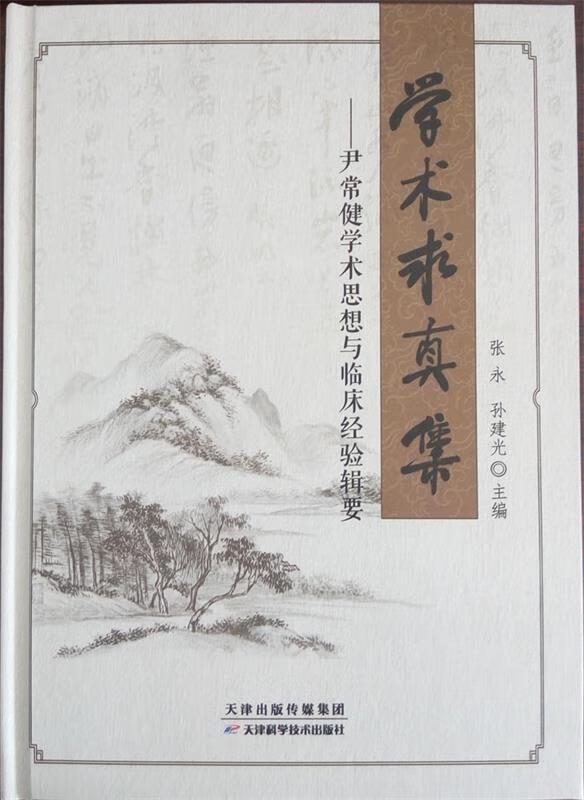 学术求真集
——尹常健学术思想与临床经验辑要
张永 孙建光◎主编
天津出版传媒集团
天津科学技术出版社